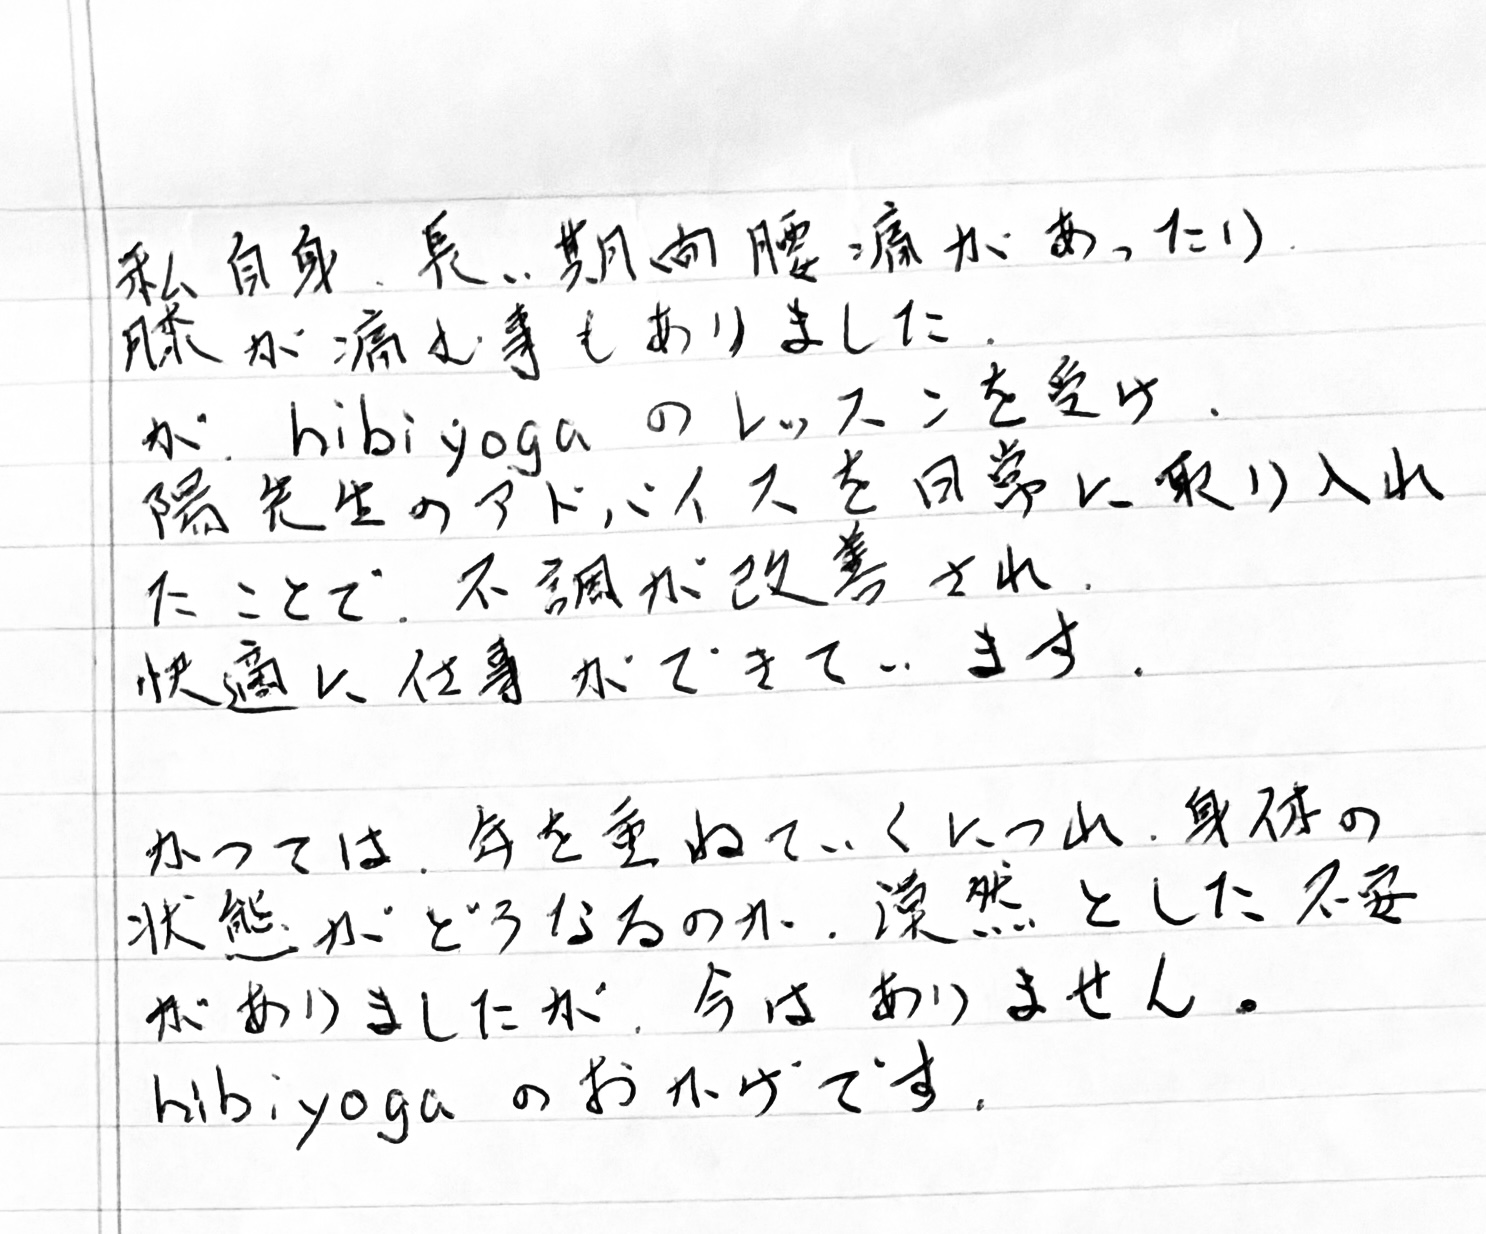 私自身、長い期間腰痛があったり、
膝が痛む事もありました。
が、hibiyogaのレッスンを受け、
陽先生のアドバイスを日常に取り入れ
たことで、不調が改善され、
快適に仕事ができています。
かつては、年を重ねていくにつれ、身体の
状態がどうなるのか、漠然とした不安
がありましたが、今はありません。
hibiyogaのおかげです。